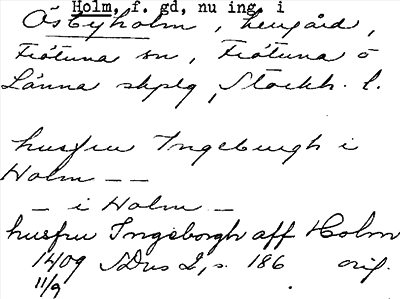 Holm, f. gd, nu ing. i
Östyholm, herrgård,
Frötuna sn, Frötuna o
Länna skplg, Stockh. l.
husfru Ingeburgh i
Holm — —
— i Holm —
husfru Ingeborgh aff Holm
1409 SDns 2, s. 186 orig.
11/9